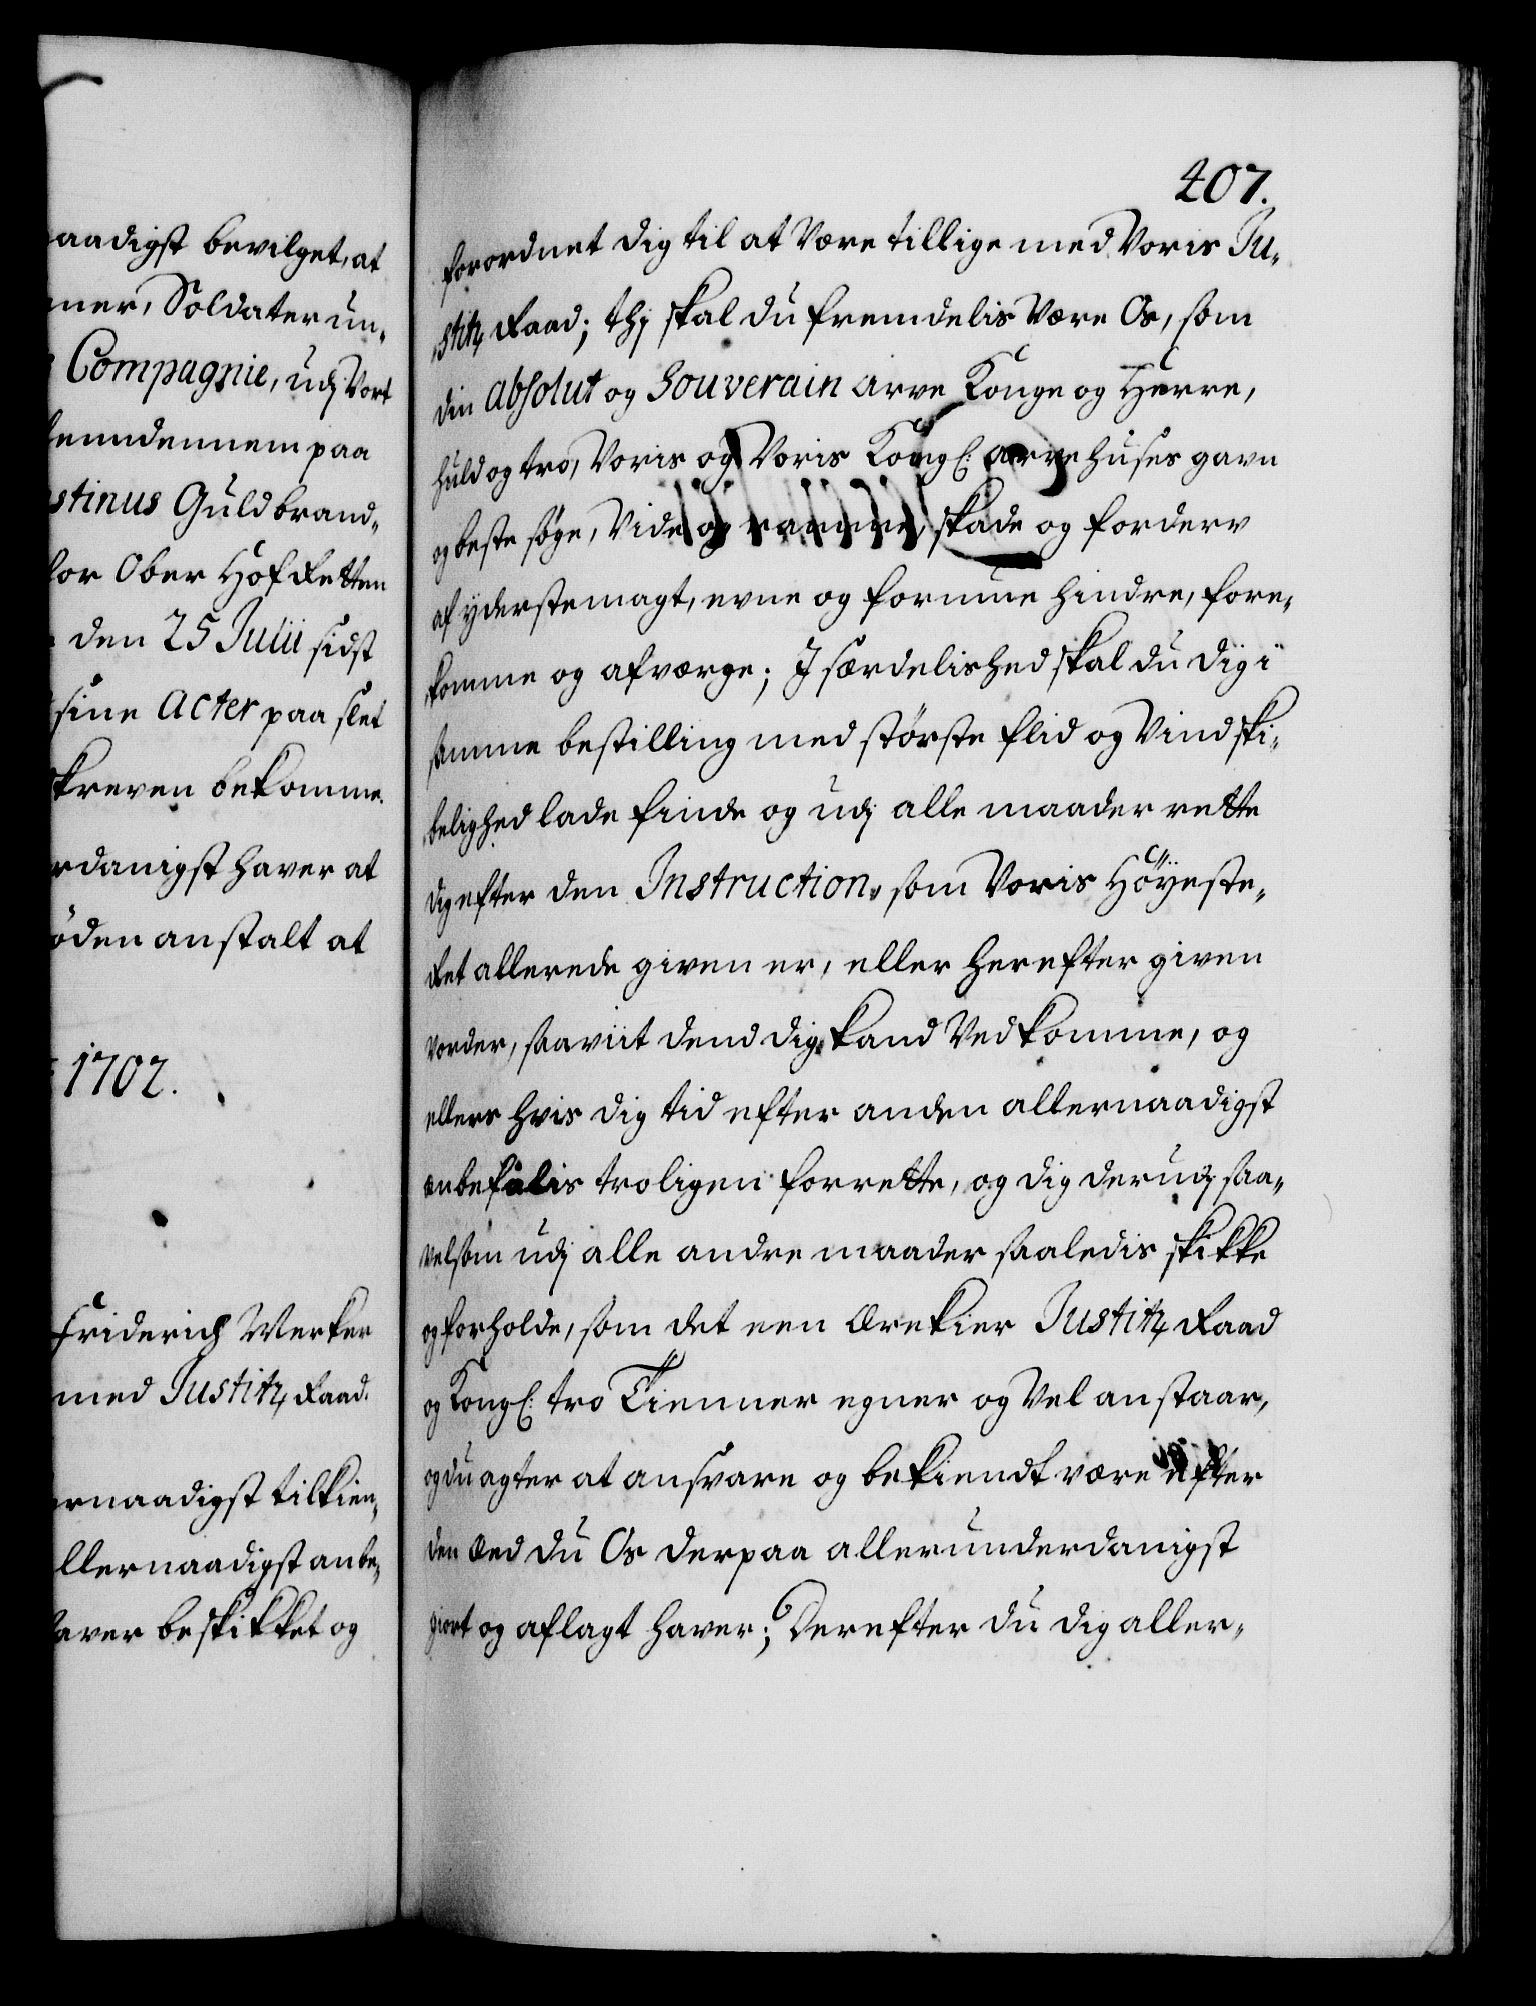 aadigst bevilget, at
ner, Soldater un-
Compagnie, udj Vort
paa
stinus Guldbrand-
for Ober Hof Retten
den 25 Julii sidst
sine Acter paa slet
skreven bekomme.
rdanigst haver at
anstalt at
1702.
Friderich Werker
med Justitz Raad.
ernaadigst tilkien-
llernaadigst anbe-
aver beskikket og
407.
forordnet dig til at Være tillige med Voris Ju-
stitz Raad; thj skal du fremdelis Være Os, som
din absolut og Souverain arve Konge og Herre,
huld og tro, Voris og Voris Kongl: arvehuses gavn
og beste søge, Vide og ramme, skade og forderv
af yderste magt, evne og formue hindre, fore-
komme og afværge; I særdelished skal du dig i
samme bestilling med største flid og Vindski-
belighed lade finde og udj alle maader rette
dig efter den Instruction, som Voris Höyeste-
Ret allerede given er, eller herefter given
vorder, saaviit dend dig kand Vedkomme, og
ellers hvis dig tid efter anden allernaadigst
anbefalis troligen forrette, og dig derudj saa-
velsom udj alle andre maader saaledis skikke
og forholde, som det een ærekier Justitz Raad
og Kongl: tro Tienner egner og Vel anstaar,
og du agter at ansvare og bekiendt være efter
den æed du Os derpaa allerunderdanigst
giort og aflagt haver; Derefter du dig aller-